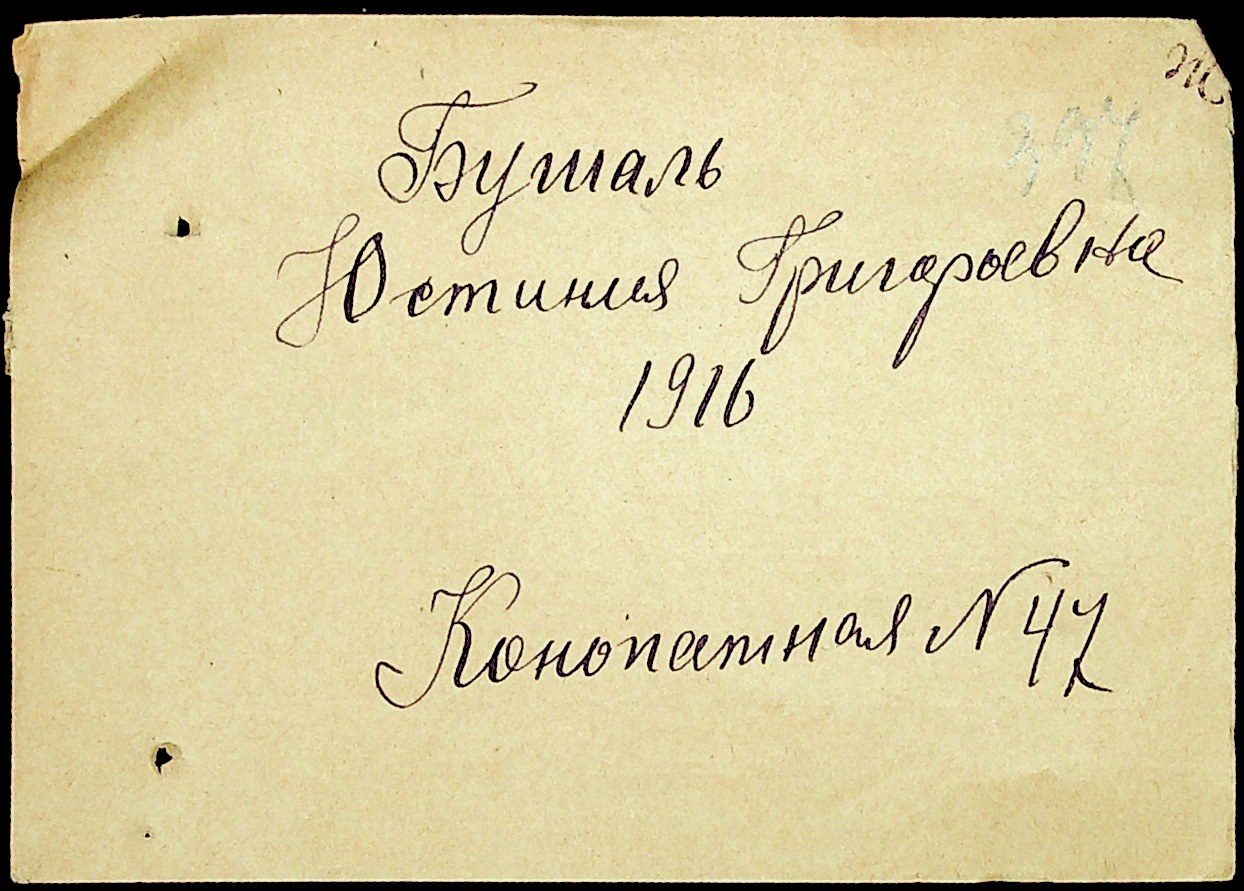 Бушаль
Юстиния Григорьевна
1916
Конопатная N 47